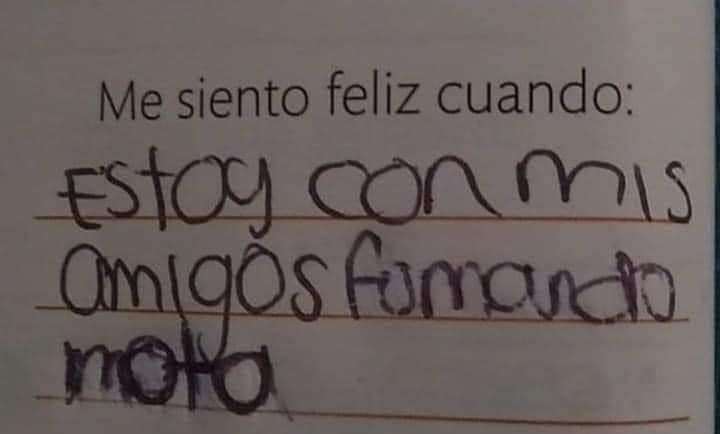 Me siento feliz cuando:
Estoy con mis
amigos fumando
mota